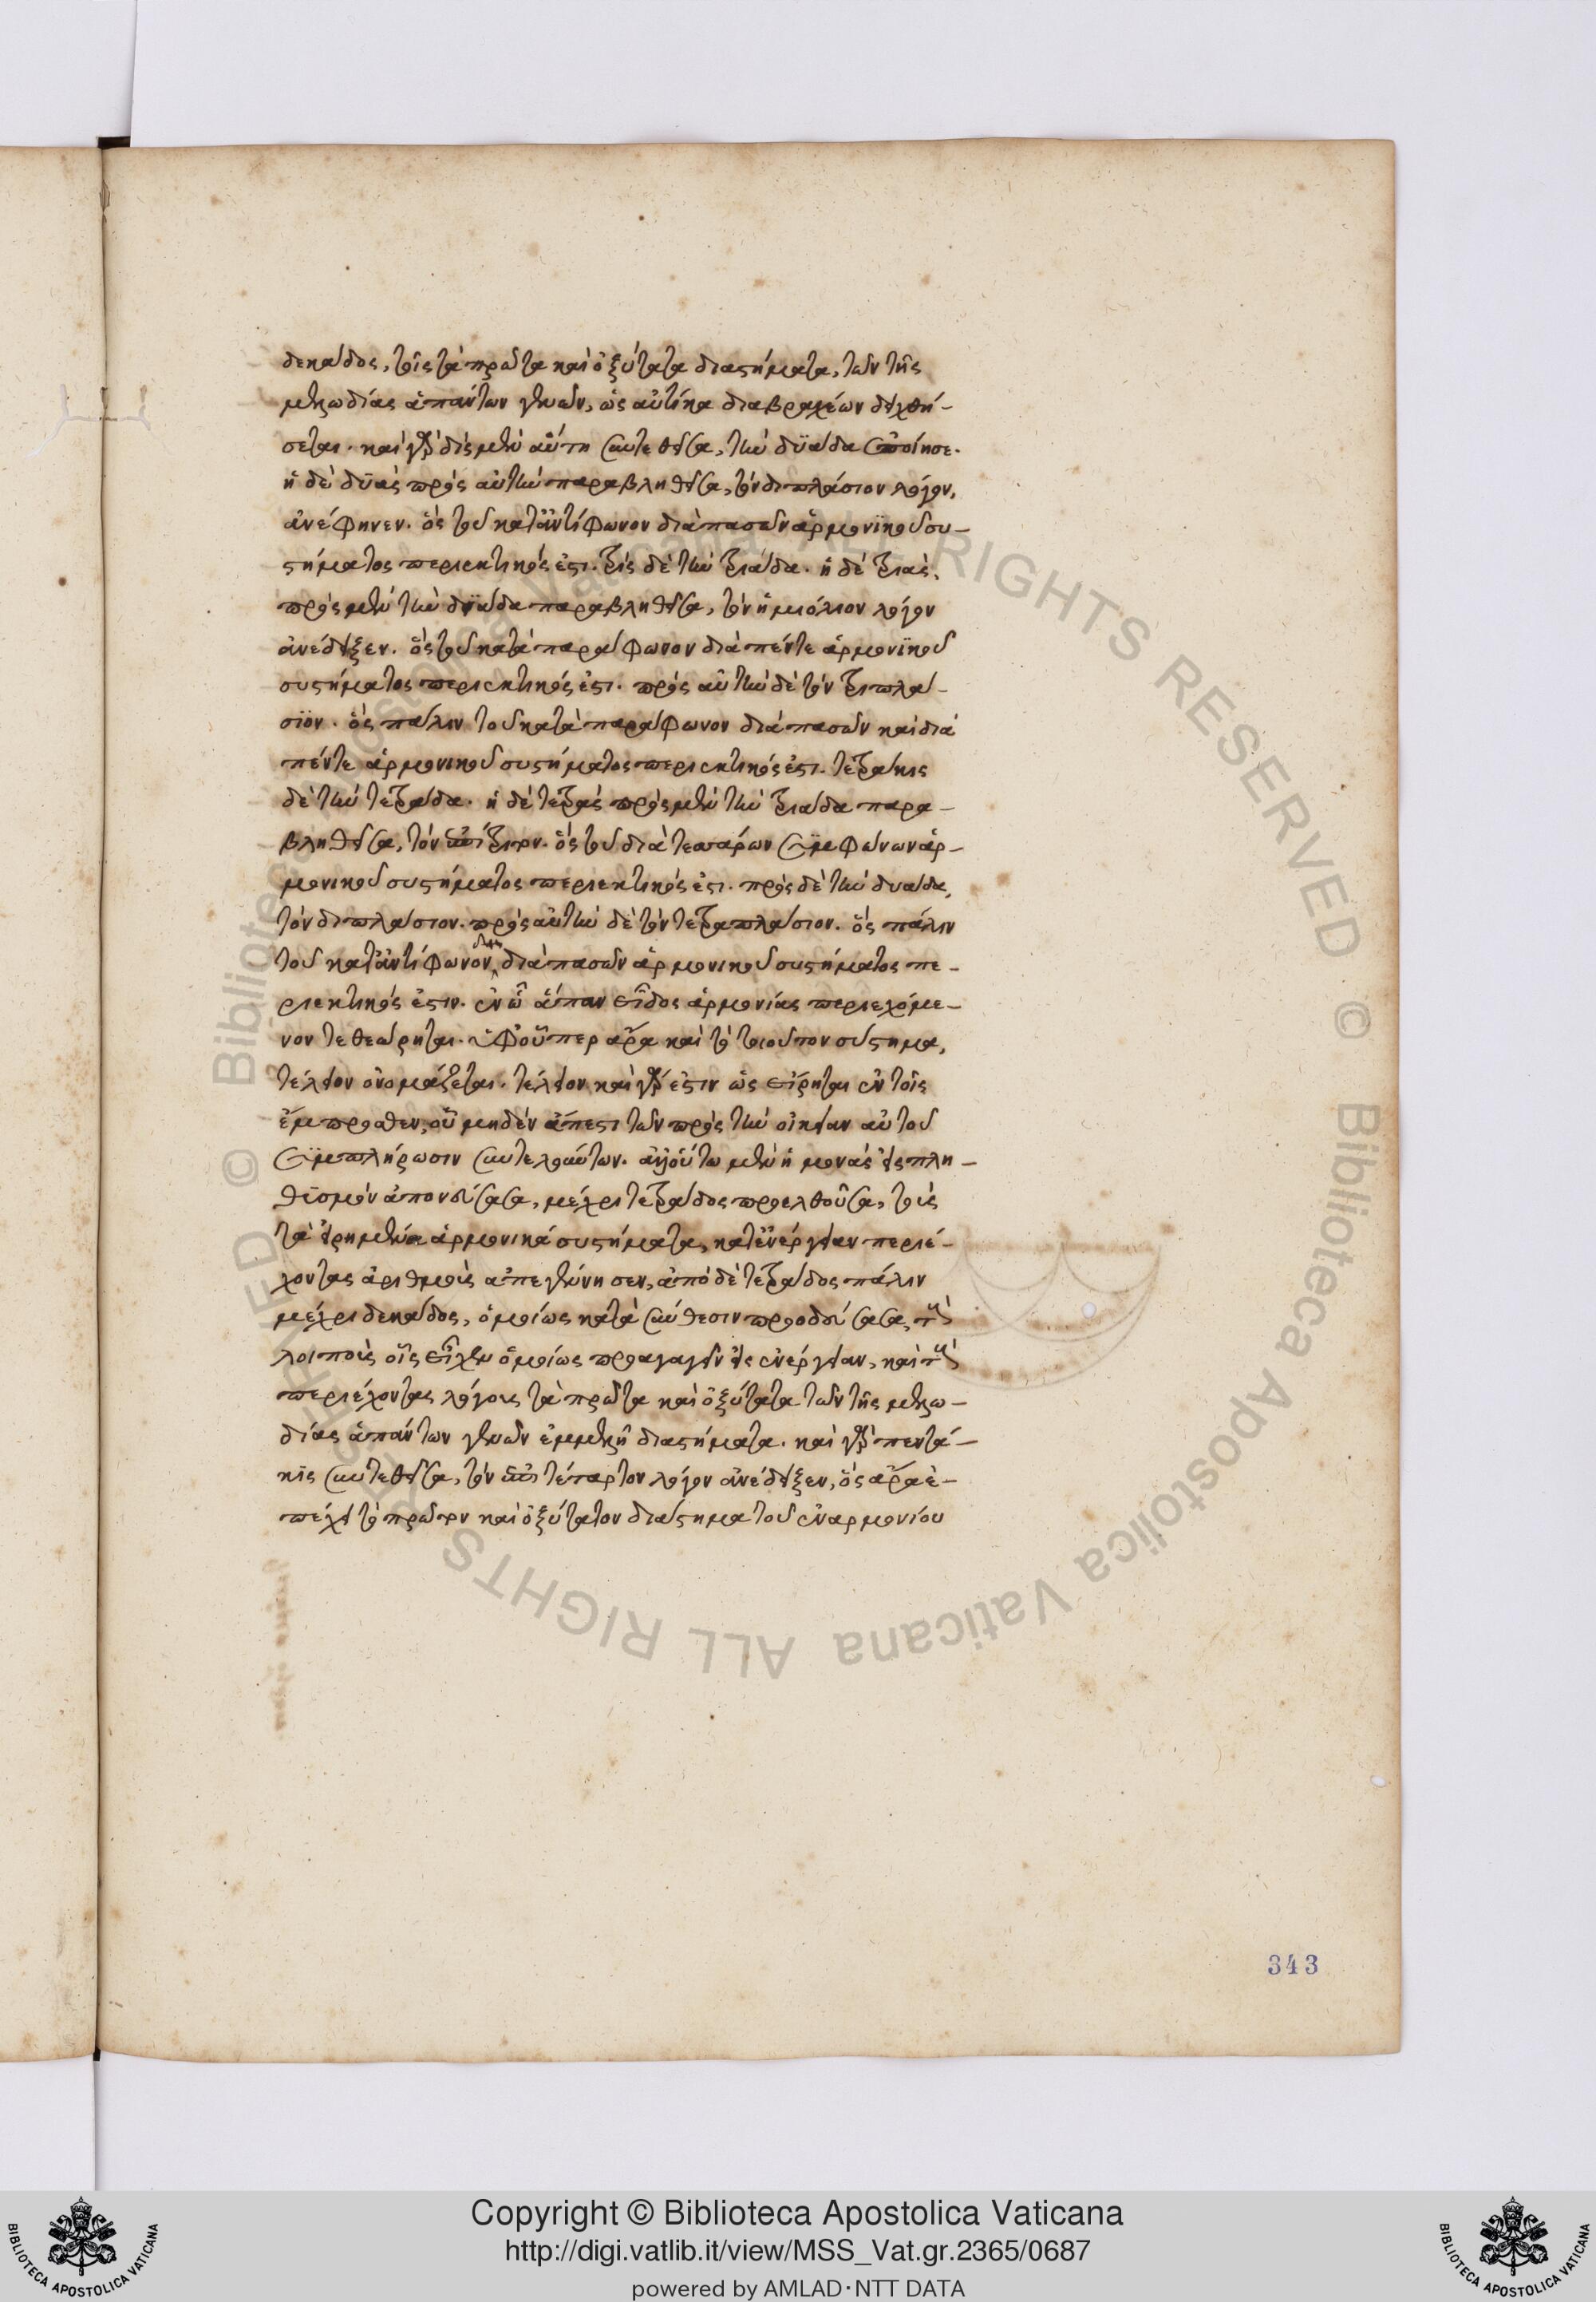 δεκάδος, τοῖς τὰ πρῶτα καὶ ὀξύτατα διαστήματα, τῶν τῆς
μελωδίας ἁπάντων γενῶν, ὡς αὐτίκα διαβραχέων δειχθή-
σεται. καὶ γὰρ δὶς μὲν αὕτη συντεθεῖσα, τὴν δυάδα ἐποίησε.
ἡ δὲ δυὰς πρὸς αὐτὴν παραβληθεῖσα, τὸν διπλάσιον λόγον,
ἀνέφηνεν. ὃς τοῦ κατ' ἀντίφωνον διὰ πασῶν ἁρμονικοῦ συ-
στήματος περιεκτικός ἐστι. τρὶς δὲ τὴν τριάδα. ἡ δὲ τριὰς,
πρὸς μὲν τὴν δυάδα παραβληθεῖσα, τὸν ἡμιόλιον λόγον
ἀνέδειξεν. ὃς τοῦ κατὰ παράφωνον διὰ πέντε ἁρμονικοῦ
συστήματος περιεκτικός ἐστι. πρὸς αὐτὴν δὲ τὸν τριπλά-
σιον. ὃς πάλιν τοῦ κατὰ παράφωνον διὰ πασῶν καὶ διὰ
πέντε ἁρμονικοῦ συστήματος περιεκτικός ἐστι. τετράκις
δὲ τὴν τετράδα. ἡ δὲ τετρὰς πρὸς μὲν τὴν τριάδα παρα-
βληθεῖσα, τὸν ἐπίτριτον. ὃς τοῦ διὰ τεσσάρων συμφώνων ἁρ-
μονικοῦ συστήματος περιεκτικός ἐστι. πρὸς δὲ τὴν δυάδα,
τὸν διπλάσιον. πρὸς αὐτὴν δὲ τὸν τετραπλάσιον. ὃς πάλιν
τοῦ κατ' ἀντίφωνον διὰ πασῶν ἁρμονικοῦ συστήματος πε-
ριεκτικός ἐστιν. ἐν ᾧ ἅπαν εἶδος ἁρμονίας περιεχόμε-
νον τεθεώρηται. ἀφ' οὗπερ ἄρα καὶ τὸ τοιοῦτον σύστημα,
τέλειον ὀνομάζεται. τέλειον καὶ γάρ ἐστιν ὡς εἴρηται ἐν τοῖς
ἔμπροσθεν, οὗ μηδὲν ἄπεστι τῶν πρὸς τὴν οἰκείαν αὐτοῦ
συμπλήρωσιν συντελούντων. ἀλλ' οὕτω μὲν ἡ μονὰς εἰς πλη-
θισμὸν ἀπονεύσασα, μέχρι τετράδος προελθοῦσα, τοὺς
τὰ εἰρημένα ἁρμονικὰ συστήματα, κατ' ἐνέργειαν περιέ-
χοντας ἀριθμοὺς ἀπεγέννησεν, ἀπὸ δὲ τετράδος πάλιν
μέχρι δεκάδος, ὁμοίως κατὰ σύνθεσιν προοδεύσασα, τοὺς
λοιποὺς οἷς εἶχεν ὁμοίως προαγαγεῖν εἰς ἐνέργειαν, καὶ τοὺς
περιέχοντας λόγους τὰ πρῶτα καὶ ὀξύτατα τῶν τῆς μελω-
δίας ἁπάντων γενῶν ἐμμελῆ διαστήματα. καὶ γὰρ πεντά-
κις συντεθεῖσα, τὸν ἐπιτέταρτον λόγον ἀνέδειξεν, ὃς ἄρα ἐ-
πέχει τὸ πρῶτον καὶ ὀξύτατον διάστημα τοῦ ἐναρμονίου
343
© Biblioteca Apostolica Vaticana ALL RIGHTS RESERVED © Biblioteca Apostolica Vaticana ALL RIGHTS RESERVED
Copyright © Biblioteca Apostolica Vaticana
http://digi.vatlib.it/view/MSS_Vat.gr.2365/0687
powered by AMLAD·NTT DATA
BIBLIOTECA APOSTOLICA VATICANA
BIBLIOTECA APOSTOLICA VATICANA